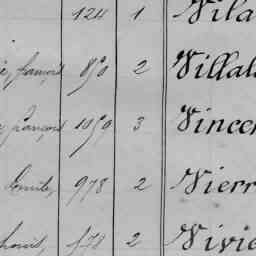 124 1 Vila
françois 850 2 Villal
françois 1059 3 Vincen
Emile, 978 2 Vierr
Louis, 578 2 Vivie